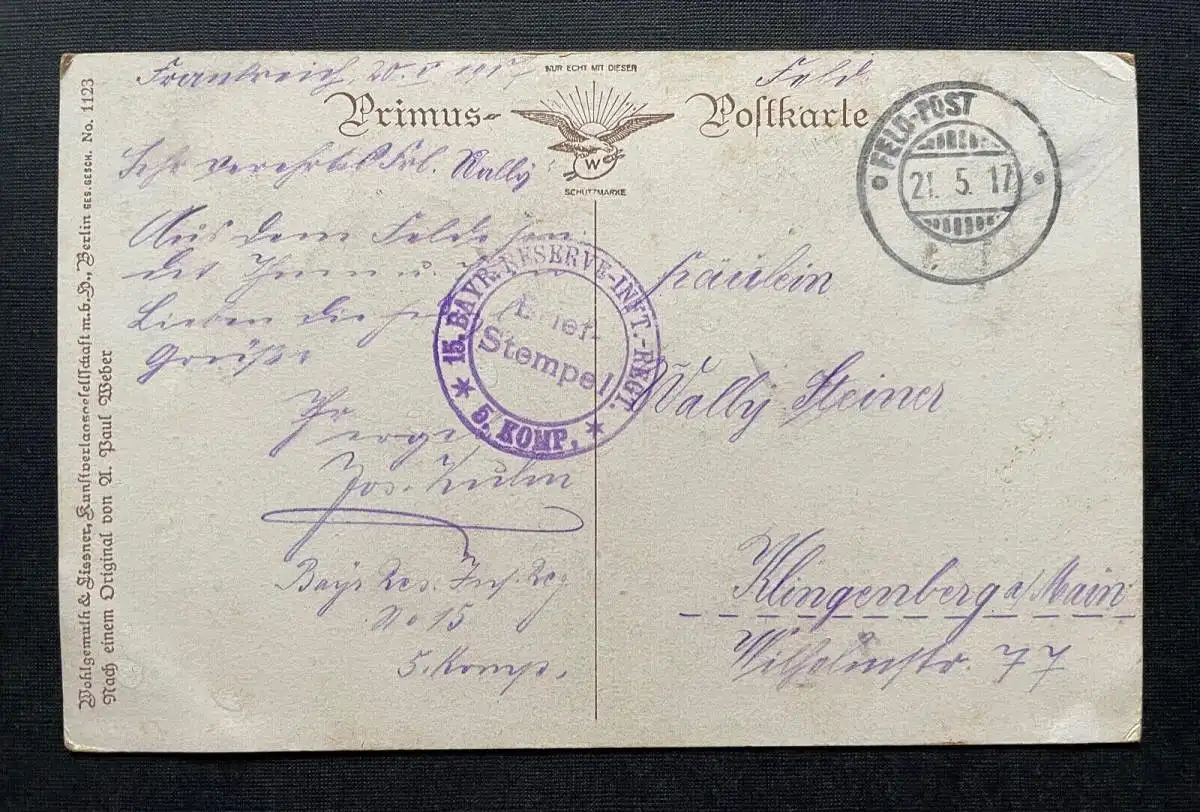 Frankreich, 20.5.1917
Feld
NUR ECHT MIT DIESER
Primus- Postkarte
W
SCHUTZMARKE
FELD-POST
21. 5. 17
Sehr verehrtes Frl. Wally
Aus dem Felde sen-
det Ihnen u. Ihren
Lieben die herzl.
Grüße
Ihr
Jos. Kuhn
Bayr Res. Inf. Reg
No 15
5. Komp.
15. BAYR. RESERVE-INFT.-REGT.
Brief-
Stempel
* 5. KOMP. *
Fräulein
Wally Steiner
Klingenberg a/Main
Wilhelmstr. 77
Wohlgemuth & Lissner, Kunstverlagsgesellschaft m.b.H., Berlin GES.GESCH. No. 1123
Nach einem Original von A. Paul Weber